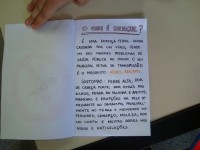 O QUE É DENGUE?
É UMA DOENÇA FEBRIL AGUDA
CAUSADA POR UM VÍRUS, SENDO
UM DOS MAIORES PROBLEMAS DE
SAÚDE PÚBLICA NO MUNDO. O SEU
PRINCIPAL VETOR DE TRANSMISSÃO
É O MOSQUITO AEDES AEGYPTI.
SINTOMAS: FEBRE ALTA, DOR
DE CABEÇA FORTE, DOR ATRÁS DOS
OLHOS, PERDA DO PALADAR E APETITE,
MANCHAS E ERUPÇÕES NA PELE
NÁUSEAS
VÔMITOS, CANSAÇO, MOLEZA, DOR
NO CORPO E MUITAS DORES NOS
OSSOS E ARTICULAÇÕES.